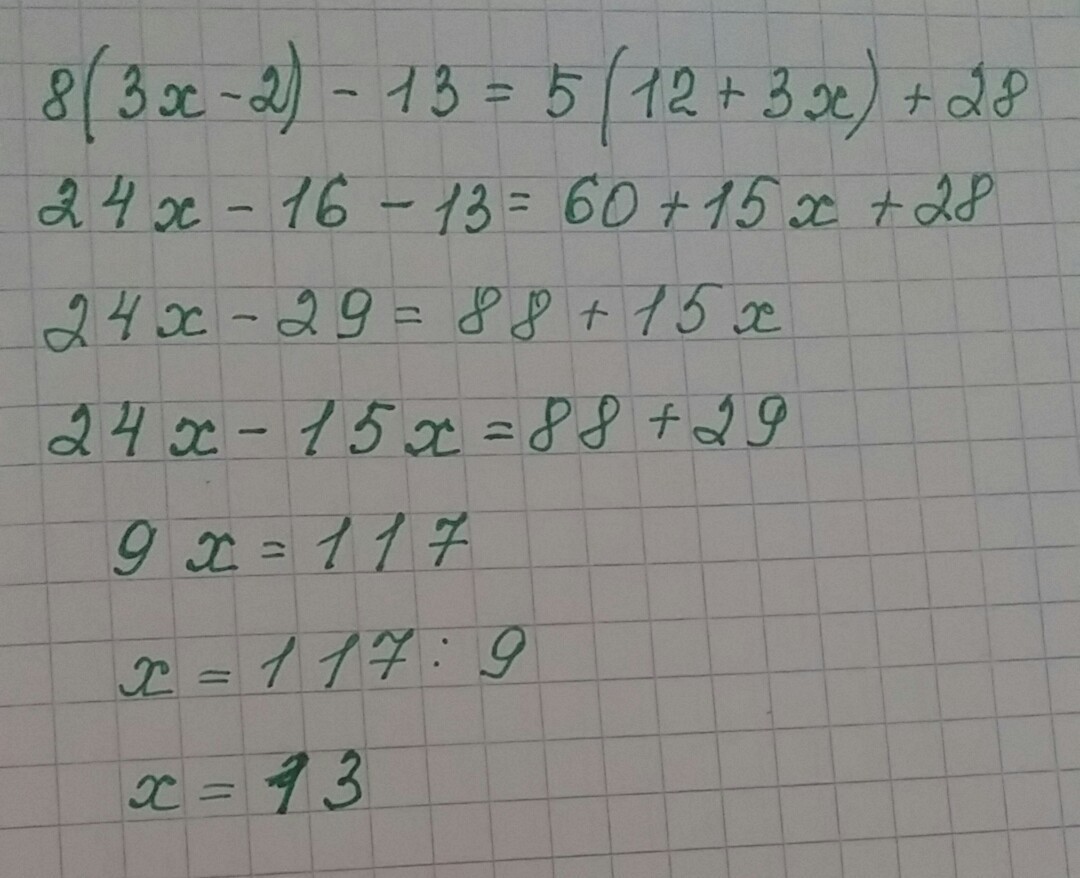 8(3x-2)-13=5(12+3x)+28
24x-16-13=60+15x+28
24x-29=88+15x
24x-15x=88+29
9x=117
x=117:9
x=13